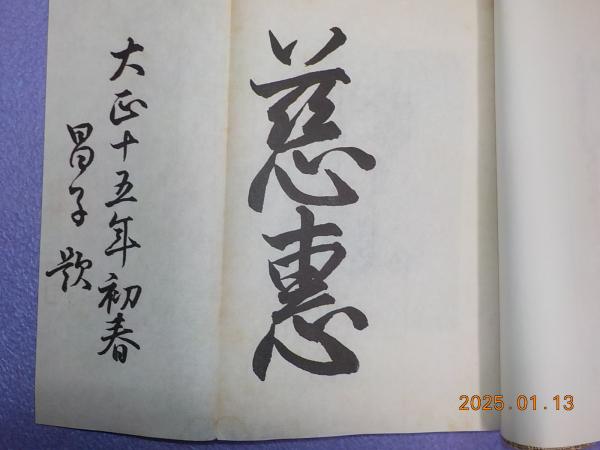 慈惠
大正十五年初春
昌子題
2025.01.13